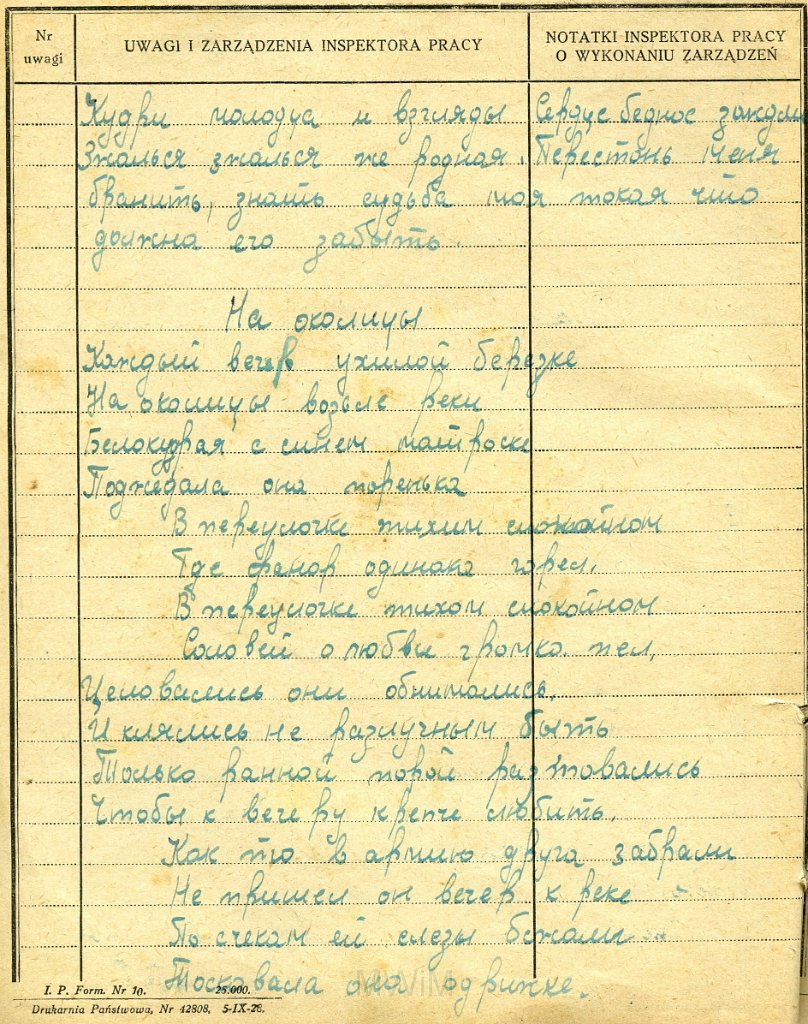 Nr uwagi
UWAGI I ZARZĄDZENIA INSPEKTORA PRACY
NOTATKI INSPEKTORA PRACY
O WYKONANIU ZARZĄDZEŃ
Кудри молодца и взгляды Сердце бедное
Зжалься зжалься же родная. Перестань меня
бранить, знать судьба моя токая что
должна его забыть.
На околицы
Каждый вечер у хилой березке
На околицы возьле реки
Белокурая с синем матроске
Поджедала она поренька
В переулочке тихим спокойном
Где фанор одинака горел.
В переулочке тихом спокойном
Соловей о любви громко пел,
Целовались они обнимались.
И клялись не разлучным быть
Только ранной порой раз товались
Чтобы к вечеру крепче любить.
Как то в армию друга забрали
Не пришел он вечер к реке
По счекам ей слезы бежали
Тосковала она
I. P. Form. Nr 10. 25.000.
Drukarnia Państwowa, Nr 42808. 5-IX-28.